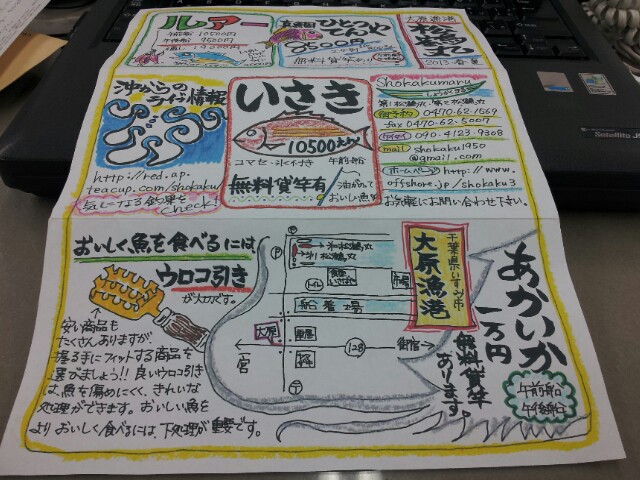 ルアー
午前船 10500円
午後船 9500円
19000円
ひとつ
てんや
8500円
無料貸竿
大原漁港
松鶴丸
2013 春夏
沖からの
ライブ情報
http://red.ap.
teacup.com/shokaku
気になる釣果を
Check!
いさき
10500円
コマセ・氷付き
午前船
無料貸竿有
油がのって
おいしい魚
Shokakumaru
第1松鶴丸、第3松鶴丸
御予約 0470-62-1569
fax 0470-62-5007
090-4123-9308
mail shokaku1950
@gmail.com
ホームページ http://www.
offshore.jp/shokaku3
お気軽にお問い合わせ下さい。
おいしく魚を食べるには
ウロコ引き
が大切です。
安い商品も
たくさんありますが、
握る手にフィットする商品を
選びましょう!! 良いウロコ引き
は、魚を傷めにくく、きれいな
処理ができます。おいしい魚を
よりおいしく食べるには、下処理が重要です。
P
トイレ
船着場
大原
一宮
128
御宿
〒
千葉県いすみ市
大原漁港
あかいか
一万円
無料貸竿
あります。
午前船
午後船
Satellite J